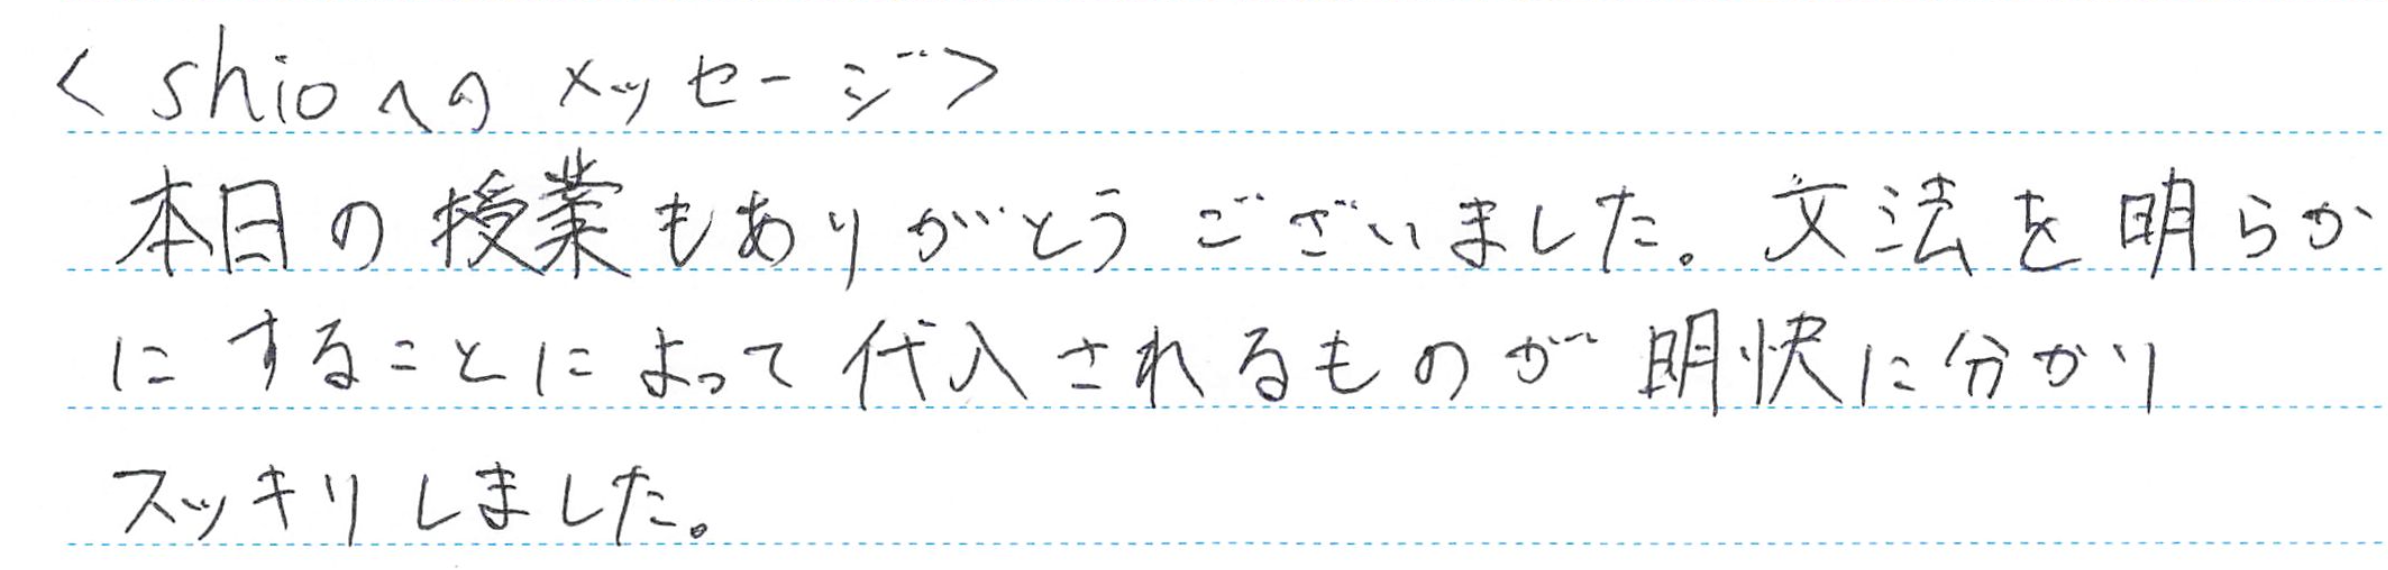 <shioへのメッセージ>
本日の授業もありがとうございました。文法を明らか
にすることによって代入されるものが明快に分かり
スッキリしました。